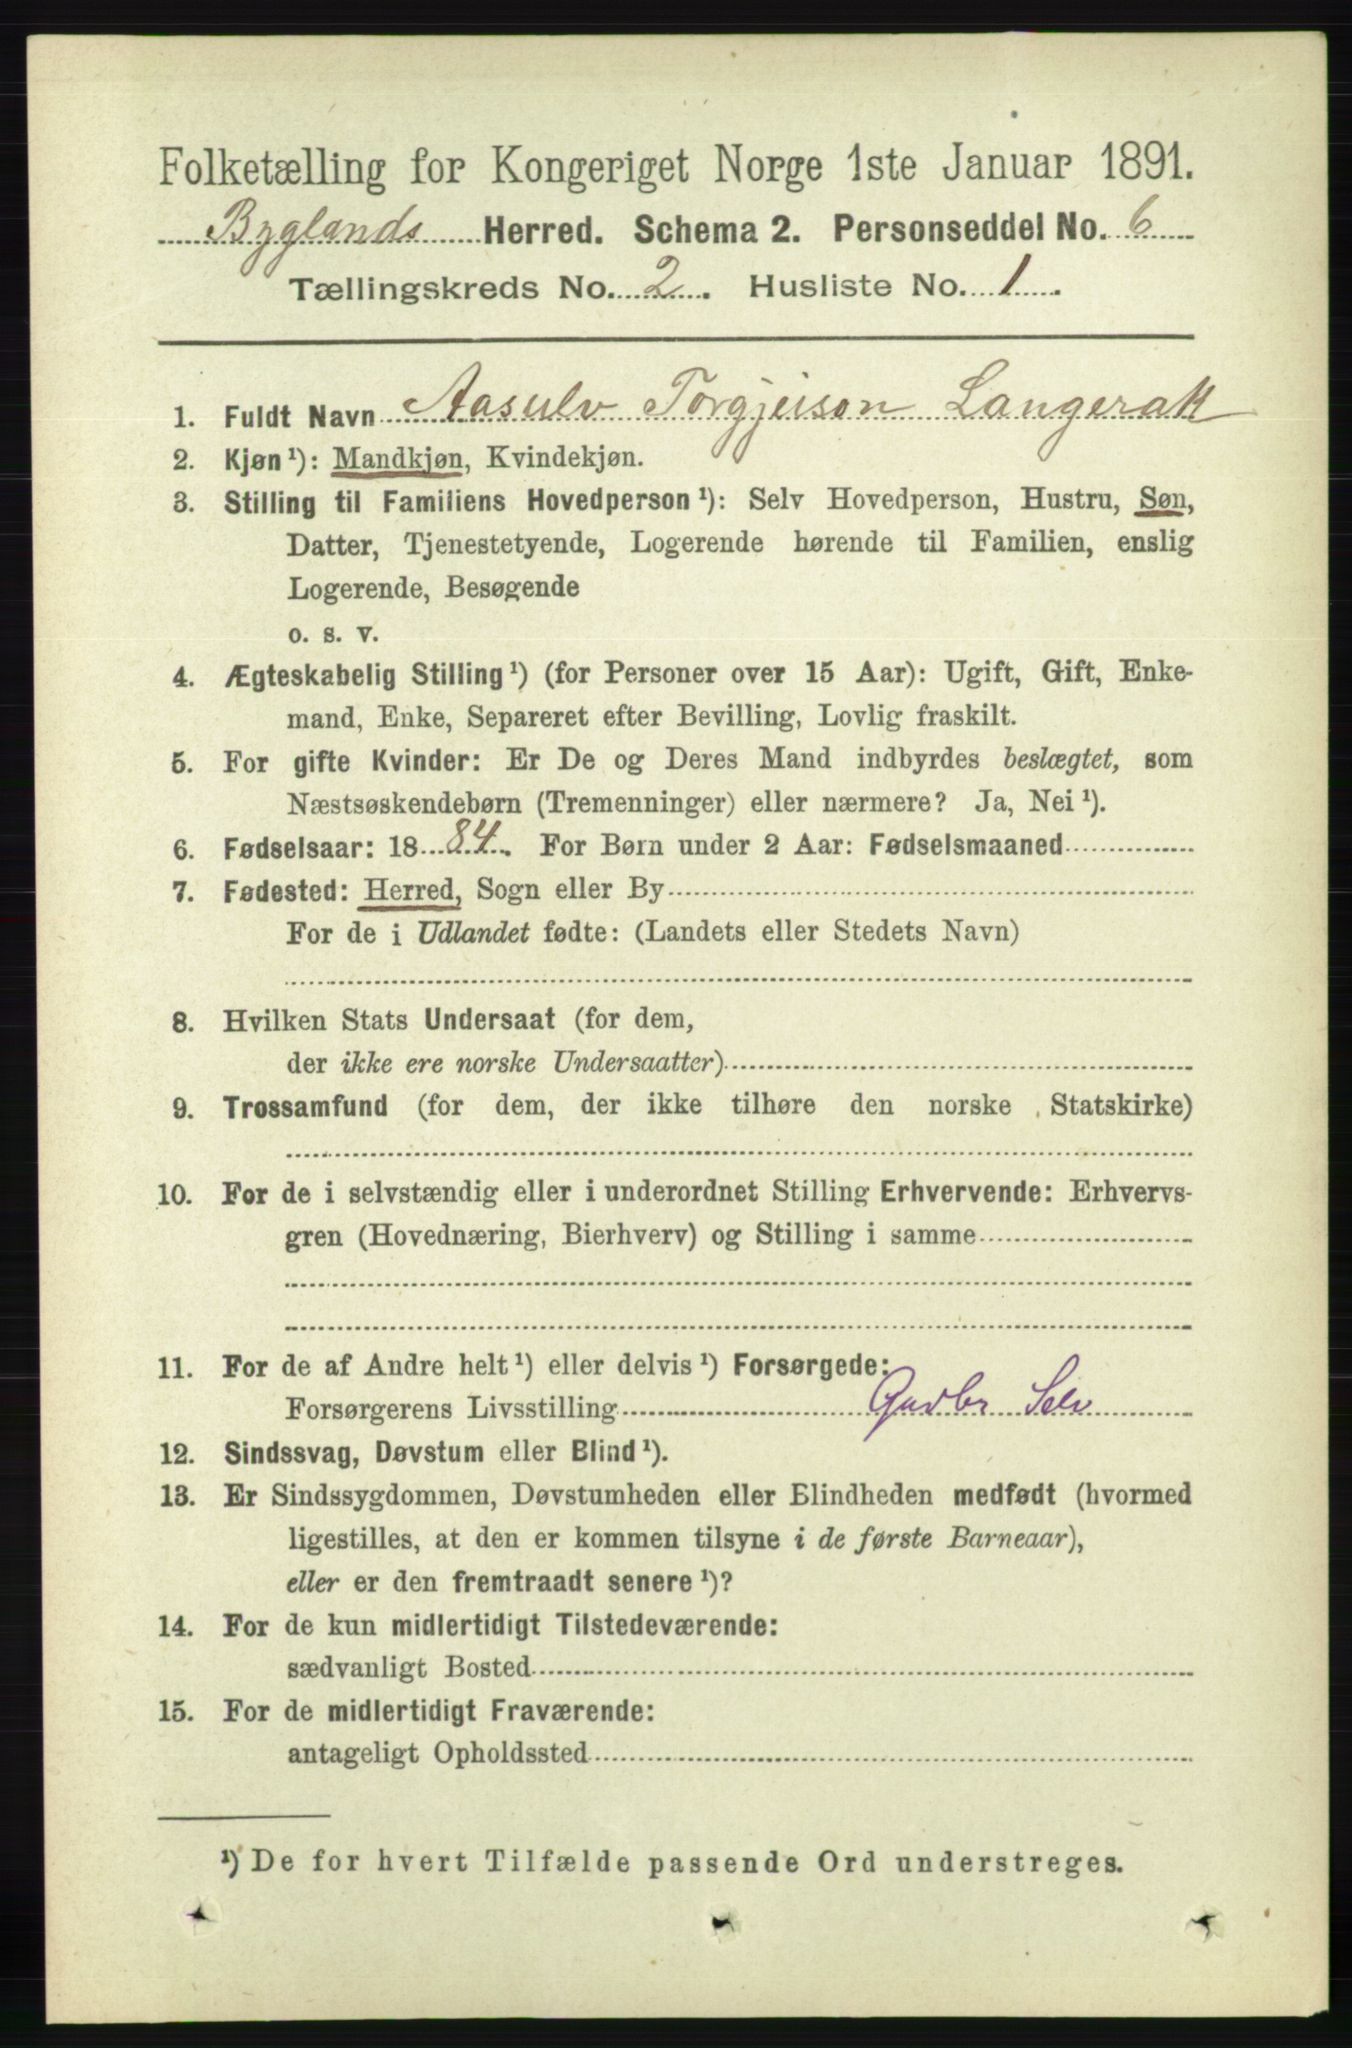 Folketælling for Kongeriget Norge 1ste Januar 1891.
Byglands Herred. Schema 2. Personseddel No. 6
Tællingskreds No. 2. Husliste No. 1.
1. Fuldt Navn Aasulv Torgjeison Langerak
2. Kjøn¹): Mandkjøn, Kvindekjøn.
3. Stilling til Familiens Hovedperson¹): Selv Hovedperson, Hustru, Søn,
Datter, Tjenestetyende, Logerende hørende til Familien, enslig
Logerende, Besøgende
o. s. v.
4. Ægteskabelig Stilling¹) (for Personer over 15 Aar): Ugift, Gift, Enke-
mand, Enke, Separeret efter Bevilling, Lovlig fraskilt.
5. For gifte Kvinder: Er De og Deres Mand indbyrdes beslægtet, som
Næstsøskendebørn (Tremenninger) eller nærmere? Ja, Nei¹).
6. Fødselsaar: 1884. For Børn under 2 Aar: Fødselsmaaned
7. Fødested: Herred, Sogn eller By
For de i Udlandet fødte: (Landets eller Stedets Navn)
8. Hvilken Stats Undersaat (for dem,
der ikke ere norske Undersaatter)
9. Trossamfund (for dem, der ikke tilhøre den norske Statskirke)
10. For de i selvstændig eller i underordnet Stilling Erhvervende: Erhvervs-
gren (Hovednæring, Bierhverv) og Stilling i samme
11. For de af Andre helt¹) eller delvis¹) Forsørgede:
Forsørgerens Livsstilling Gaardbr Selv
12. Sindssvag, Døvstum eller Blind¹).
13. Er Sindssygdommen, Døvstumheden eller Blindheden medfødt (hvormed
ligestilles, at den er kommen tilsyne i de første Barneaar),
eller er den fremtraadt senere¹)?
14. For de kun midlertidigt Tilstedeværende:
sædvanligt Bosted
15. For de midlertidigt Fraværende:
antageligt Opholdssted
¹) De for hvert Tilfælde passende Ord understreges.